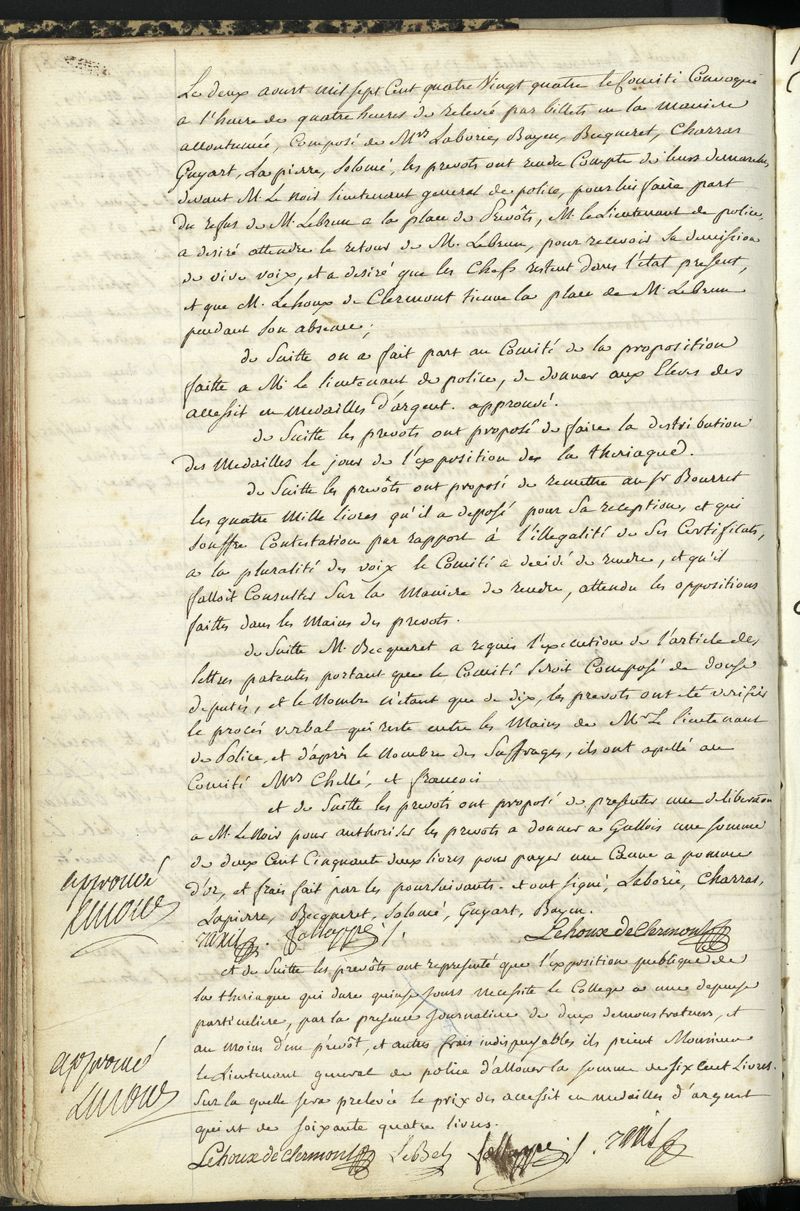 Le deux aoust mil sept Cent quatre Vingt quatre le Comité Convoqué
a l'heure de quatre heures de relevée par billets en la maniere
accoutumée, Composé de Mrs Laborie, Bayen, Becqueret, Charras
Guyart, Lapierre, Solomé, les prevots ont rendu Compte de leurs demarches
devant M. Le Noir lieutenant general de police, pour lui faire part
du refus de M. Lebrun a la place de Prevôts, M. le Lieutenant de police,
a desiré attendre le retour de M. Lebrun, pour recevoir sa demission
de vive voix, et a desiré que les Chefs restent dans l'état present,
et que M. Lehoux de Clermont tienne la place de M. Lebrun
pendant son absence;
de Suitte on a fait part au Comité de la proposition
faitte a M. Le lieutenant de police, de donner aux Eleves des
accessit en medailles d'argent. approuvé.
de Suitte les prevots ont proposé de faire la distribution
des Medailles le jour de l'exposition de la theriaque.
de Suitte les prevôts ont proposé de remettre au Sr Bourret
les quatre Mille livres qu'il a deposé pour sa reception, et qui
souffre Contestation par rapport à l'illegalité de ses Certificats,
a la pluralité des voix le Comité a decidé de rendre, et qu'il
falloit Consulter sur la Maniere de rendre, attendu les oppositions
faittes dans les Mains des prevots.
de Suitte M. Becqueret a requis l'execution de l'article des
lettres patentes portant que le Comité seroit Composé de douse
deputés, et le Nombre n'étant que de dix, les prevots ont été verifier
le procés verbal qui reste entre les Mains de Mr Le lieutenant
de Police, et d'aprés le Nombre des Suffrages, ils ont apellé au
Comité Mrs Chellé, et francois.
et de Suitte les prevots ont proposé de presenter une deliberation
a M. LeNoir pour authoriser les prevots a donner a Gallois une somme
de deux Cent Cinquante deux livres pour payer une Canne a pomme
d'or, et frais fait par les poursuivants. et ont signé, Laborie, Charras,
Lapierre, Becqueret, Solomé, Guyart, Bayen.
Lehoux de Clermont
approuvé
Lenoir
et de Suitte les prevôts ont representé que l'exposition publique de
la theriaque qui dure quinse jours necessite le College a une depense
particuliere, par la presence journaliere de deux demonstrateurs, et
au moins d'un prevôt, et autres frais indispensables ils prient Monsieur
le Lieutenant general de police d'allouer la somme de six cent Livres.
Sur la quelle sera prelevée le prix des accessit en medailles d'argent
qui est de soixante quatre livres.
approuvé
Lenoir
Lehoux de Clermont LeBel